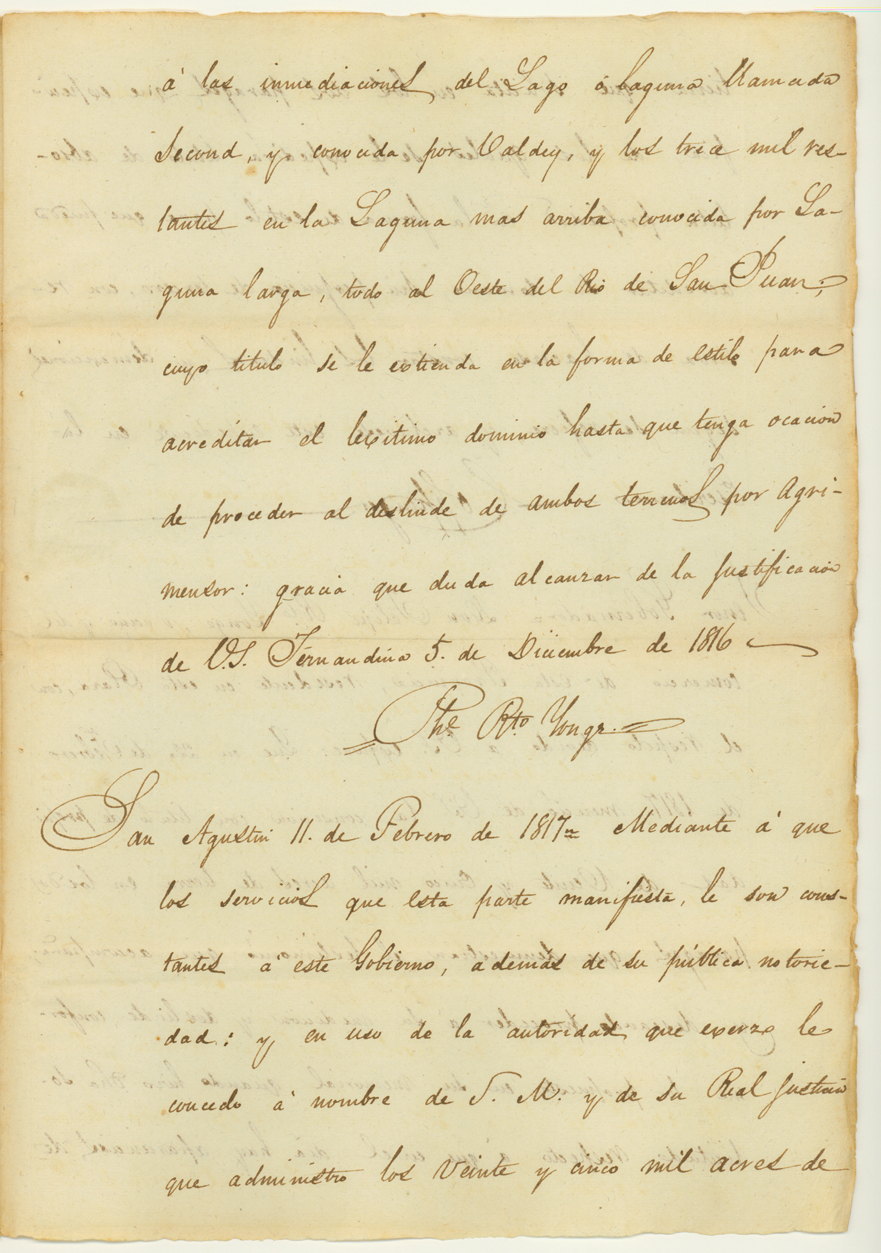 á las inmediaciones del Lago ó laguna llamada
Second, y conocida por Valdey, y los trece mil res-
tantes en la Laguna mas arriba conocida por La-
guna larga, todo al Oeste del Rio de San Juan;
cuyo titulo se le estienda en la forma de estilo para
acreditar el legitimo dominio hasta que tenga ocacion
de proceder al deslinde de ambos terrenos por Agri-
mensor: gracia que duda alcanzar de la Justificacion
de V.S. Fernandina 5. de Diciembre de 1816
Phe. Rto Yonge.
San Agustin 11. de Febrero de 1817 Mediante á que
los servicios que esta parte manifiesta, le son cons-
tantes á este Gobierno, además de su pública notorie-
dad: y en uso de la autoridad que exerzo le
concedo á nombre de S. M. y de su Real Justicia
que administro los veinte y cinco mil acres de